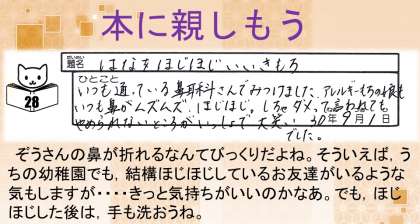 本に親しもう
題名 はなをほじほじいいきもち
ひとこと
いつも通っている鼻耳科さんでみつけました、アレルギーもちの娘も
いつも鼻がムズムズ、ほじほじ。しちゃダメって言われても
やめられないところがいっしょで大笑い
でした。
30年9月1日
28
ぞうさんの鼻が折れるなんてびっくりだよね。そういえば,う
ちの幼稚園でも,結構ほじほじしているお友達がいるような
気もしますが・・・・きっと気持ちがいいのかなあ。でも,ほじ
ほじした後は,手も洗おうね。